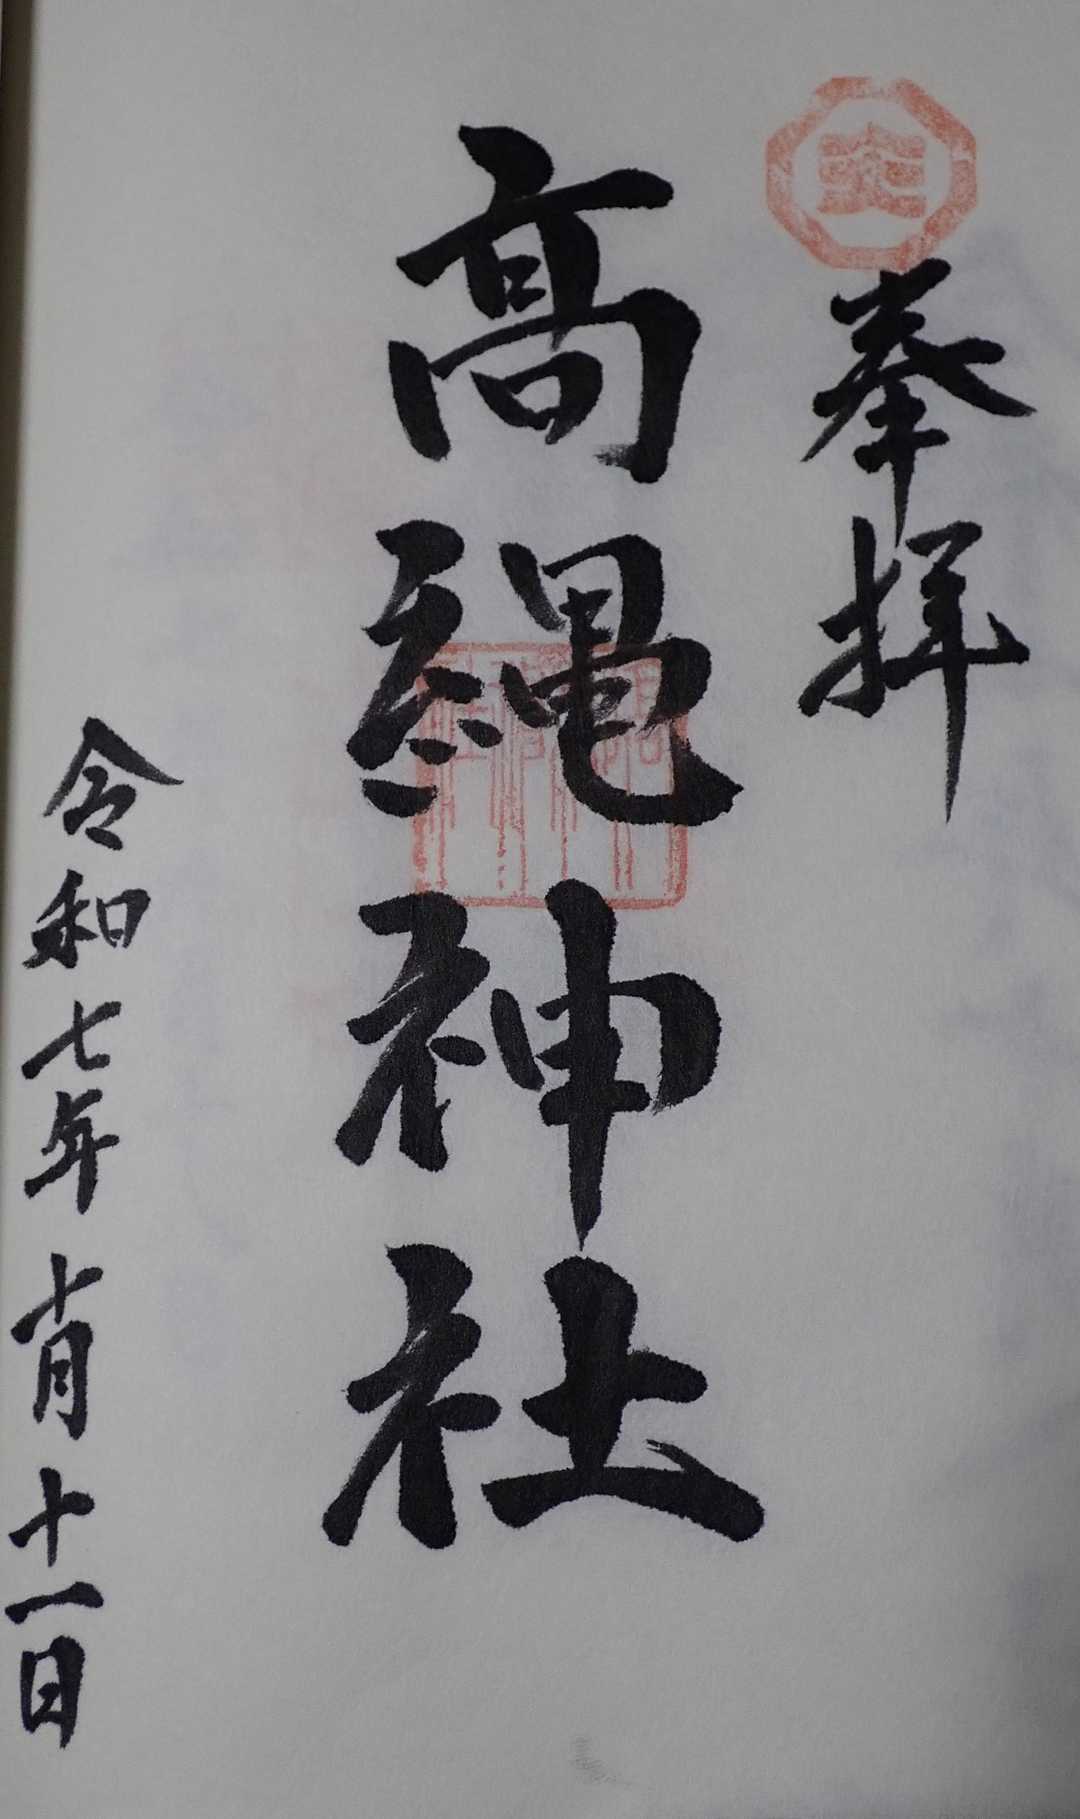 奉拝
高縄神社
令和七年十月十一日